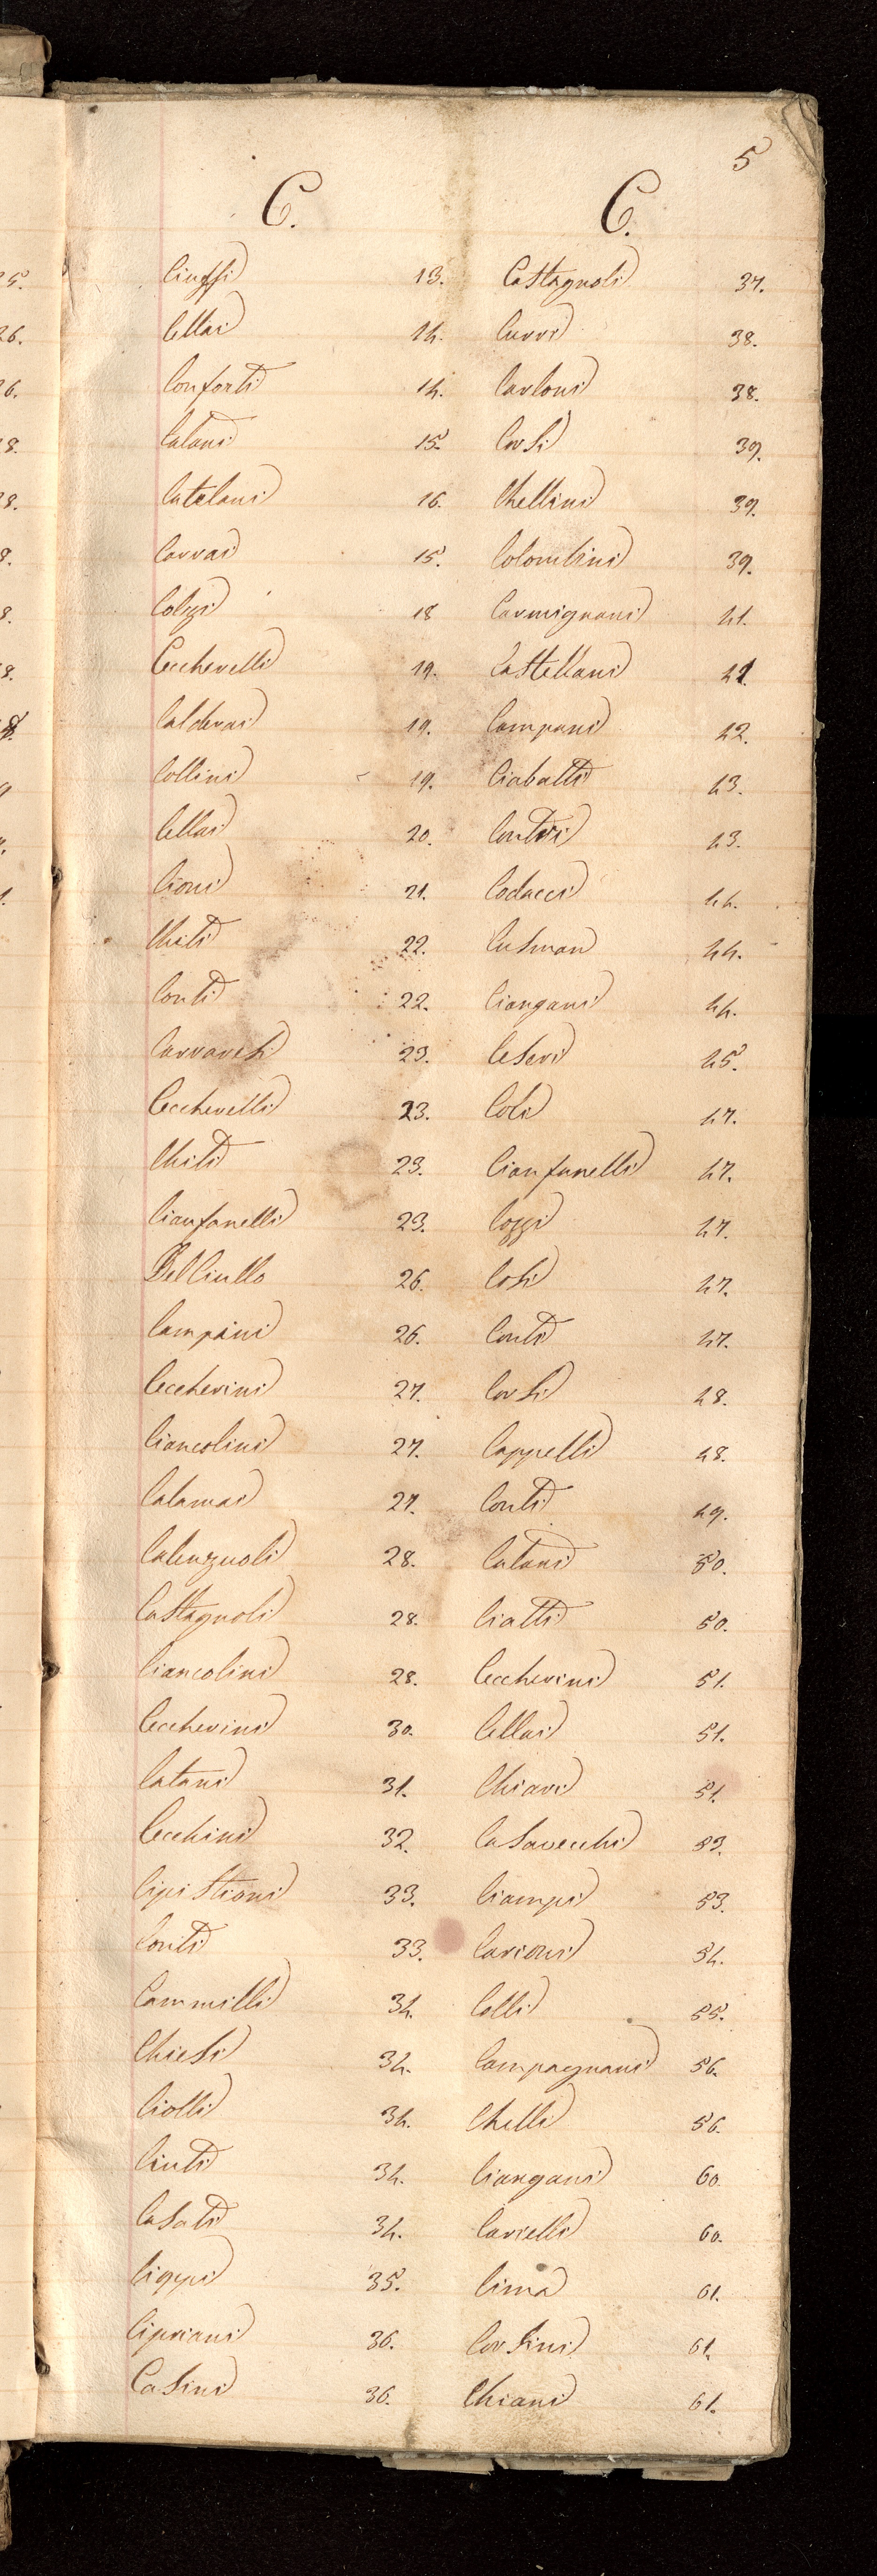 5
C.
Ciuffi 13.
Cellai 14.
Conforti 14.
Catani 15.
Catelani 16.
Carrai 15.
Colzi 18
Ceccherelli 19.
Calderai 19.
Collini 19.
Cellai 20.
Cioni 21.
Chiti 22.
Conti 22.
Carraresi 23.
Ceccherelli 23.
Chiti 23.
Cianfanelli 23.
Del Ciullo 26.
Campini 26.
Ceccherini 27.
Ciancolini 27.
Calamai 27.
Calenzuoli 28.
Castagnoli 28.
Ciancolini 28.
Ceccherini 30.
Catani 31.
Cecchini 32.
Cipistioni 33.
Conti 33.
Cammilli 34.
Chiesi 34.
Ciolli 34.
Ciuti 34.
Casati 34.
Cioppi 35.
Cipriani 36.
Casini 36.
C.
Castagnoli 37.
Curri 38.
Carloni 38.
Corsi 39.
Chellini 39.
Colombini 39.
Carmignani 41.
Castellani 41.
Campani 42.
Ciabatti 43.
Contri 43.
Codacci 44.
Cusman 44.
Ciangani 44.
Ceseri 45.
Coli 47.
Cianfanelli 47.
Cozzi 47.
Cosi 47.
Conti 47.
Corsi 48.
Cappelli 48.
Conti 49.
Catani 50.
Ciatti 50.
Ceccherini 51.
Cellai 51.
Chiari 51.
Casavecchi 53.
Ciampi 53.
Carioni 54.
Colli 55.
Campagnani 56.
Chelli 56.
Ciangani 60.
Carielli 60.
Cima 61.
Corsini 61.
Chiani 61.